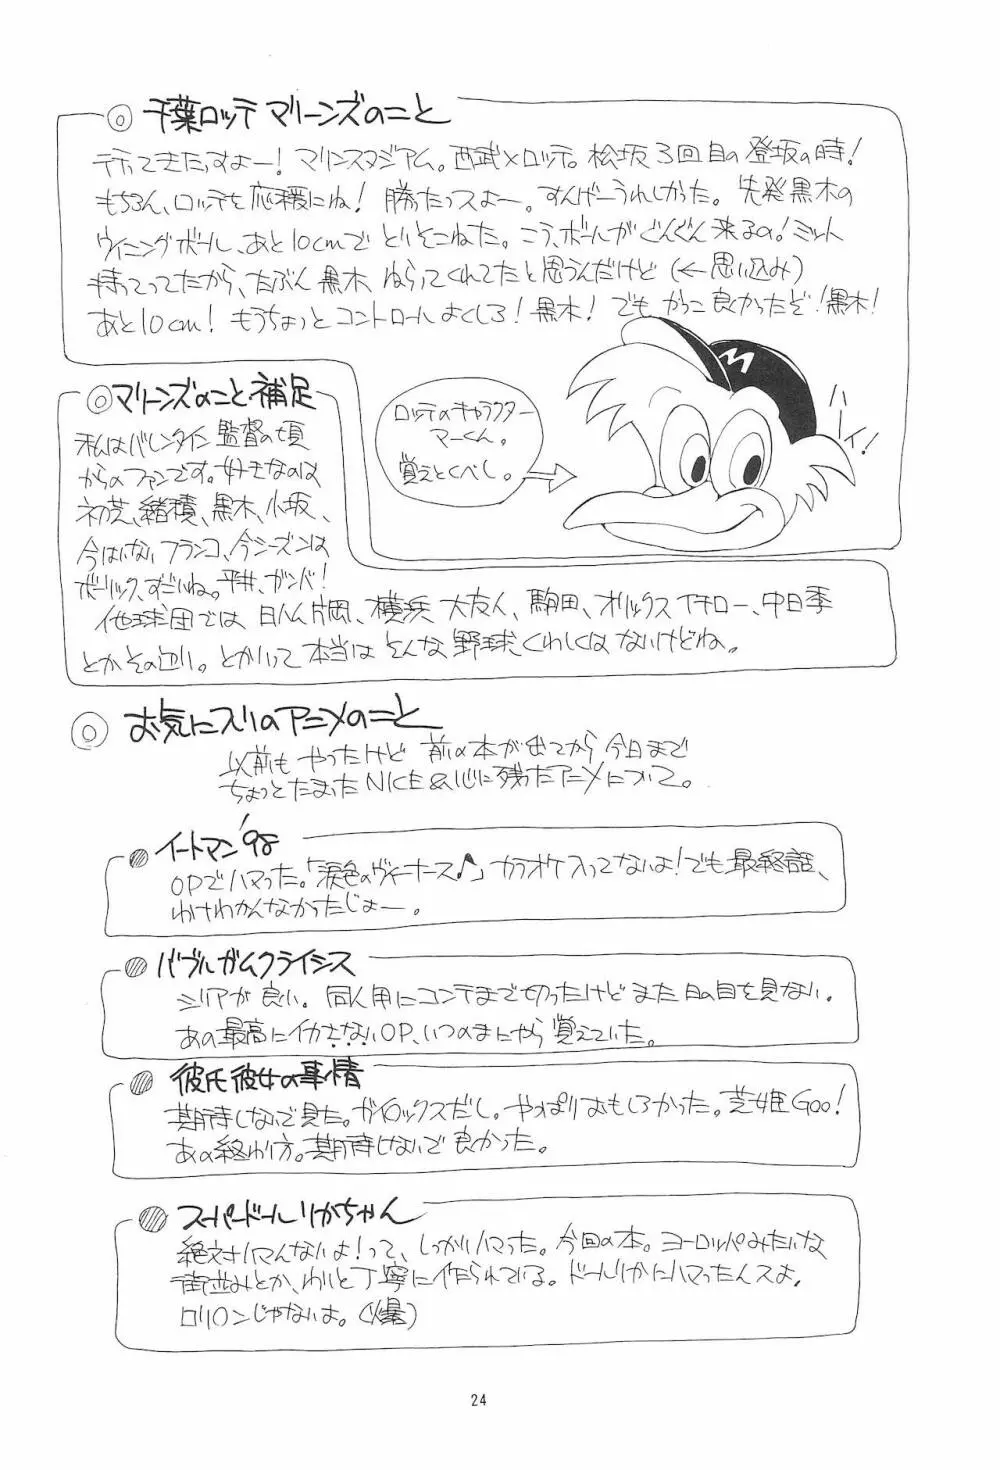 ◎ 千葉ロッテマリーンズのこと
行ってきたっすよー！マリンスタジアム。西武×ロッテ。松坂3回目の登坂の時！
もちろん、ロッテを応援にね！勝たっスよー。すんげーうれしかった。先発黒木の
ウイニングボール、あと10cmでとりそこねた。こう、ボールがぐんぐん来るの！ミット
持ってってたから、たぶん黒木ねらってくれてたと思うんだけど（←思い込み）
あと10cm！もうちょっとコントロールよくしろ！黒木！でもかっこ良かったぞ！黒木！
◎マリーンズのこと補足
私はバレンタイン監督の頃
からのファンです。好きなのは
初芝、緒積、黒木、小坂、
今はいないフランコ、今シーズンは
ボーリック、すごいね。平井、ガンバ！
他球団では日ハム片岡、横浜大友人、駒田、オリックスイチロー、中日李
とかその辺り。とかいって本当はそんな野球くわしくはないけどね。
ロッテのキャラクター
マーくん。
覚えとくべし。
M
ハーイ！
◎ お気に入りのアニメのこと
以前もやったけど前の本が出てから今日まで
ちょっとたまったNICE&心に残ったアニメについて。
イートマン'98
OPでハマった。「涙色のヴィーナス♪」カラオケ入ってないよ！でも最終話、
わけわかんなかったじょー。
バブルガムクライシス
シリアが良い。同人用にコンテまで切ったけどまだ日の目を見ない。
あの最高にイカさないOP、いつのまにやら覚えていた。
彼氏彼女の事情
期待しないで見た。ガイロックスだし。やっぱりおもしろかった。芝姫Goo!
あの終わり方。期待しないで良かった。
スーパードールリカちゃん
絶対ハマんないよ！って、しっかりハマった。今回の本。ヨーロッパみたいな
街並みとか、わりと丁寧に作られている。ドールリカにハマったんスよ。
ロリ○ンじゃないよ。（爆）
24